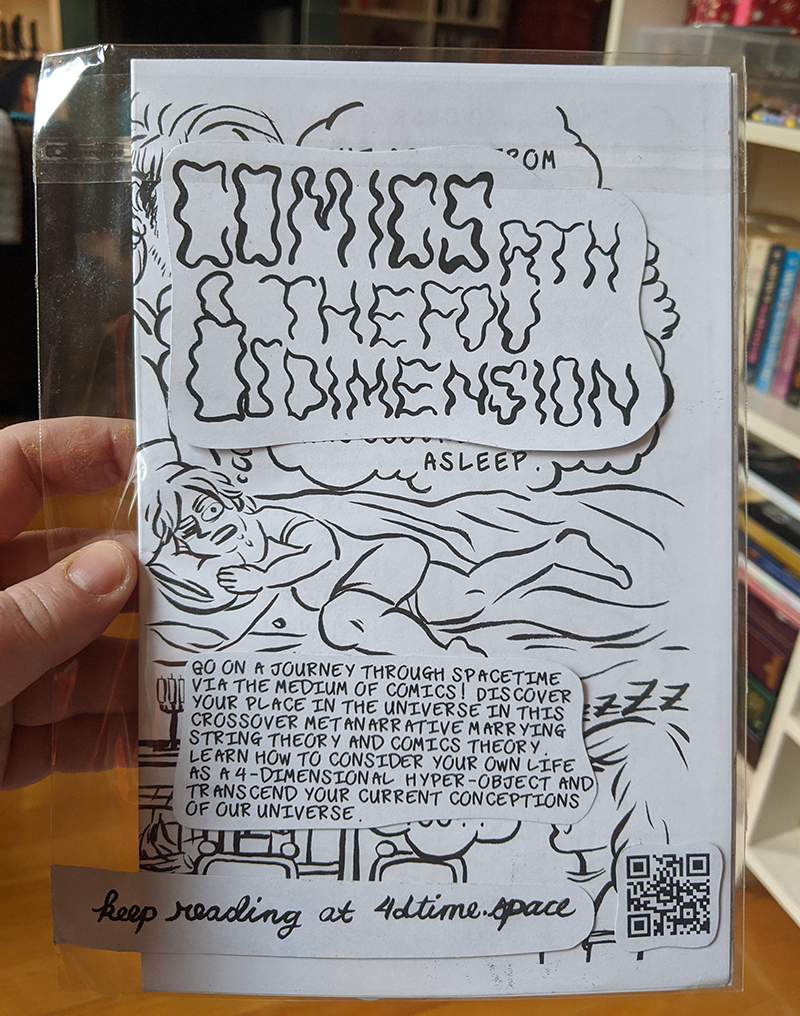 FROM
COMICS
& THE FOURTH
DIMENSION
ASLEEP.
GO ON A JOURNEY THROUGH SPACETIME
VIA THE MEDIUM OF COMICS! DISCOVER
YOUR PLACE IN THE UNIVERSE IN THIS
CROSSOVER METANARRATIVE MARRYING
STRING THEORY AND COMICS THEORY.
LEARN HOW TO CONSIDER YOUR OWN LIFE
AS A 4-DIMENSIONAL HYPER-OBJECT AND
TRANSCEND YOUR CURRENT CONCEPTIONS
OF OUR UNIVERSE.
ZZZZ
keep reading at 4dtime.space